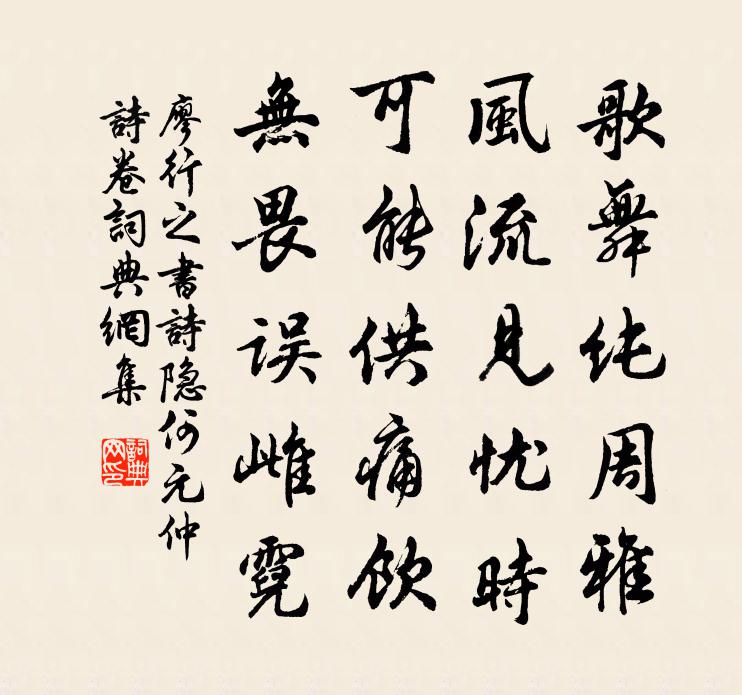 歌舞纯周雅
風流見忧時
可能供痛飲
無畏误雌霓
廖行之書詩隐何元仲
詩卷詞典網集
詞典网印